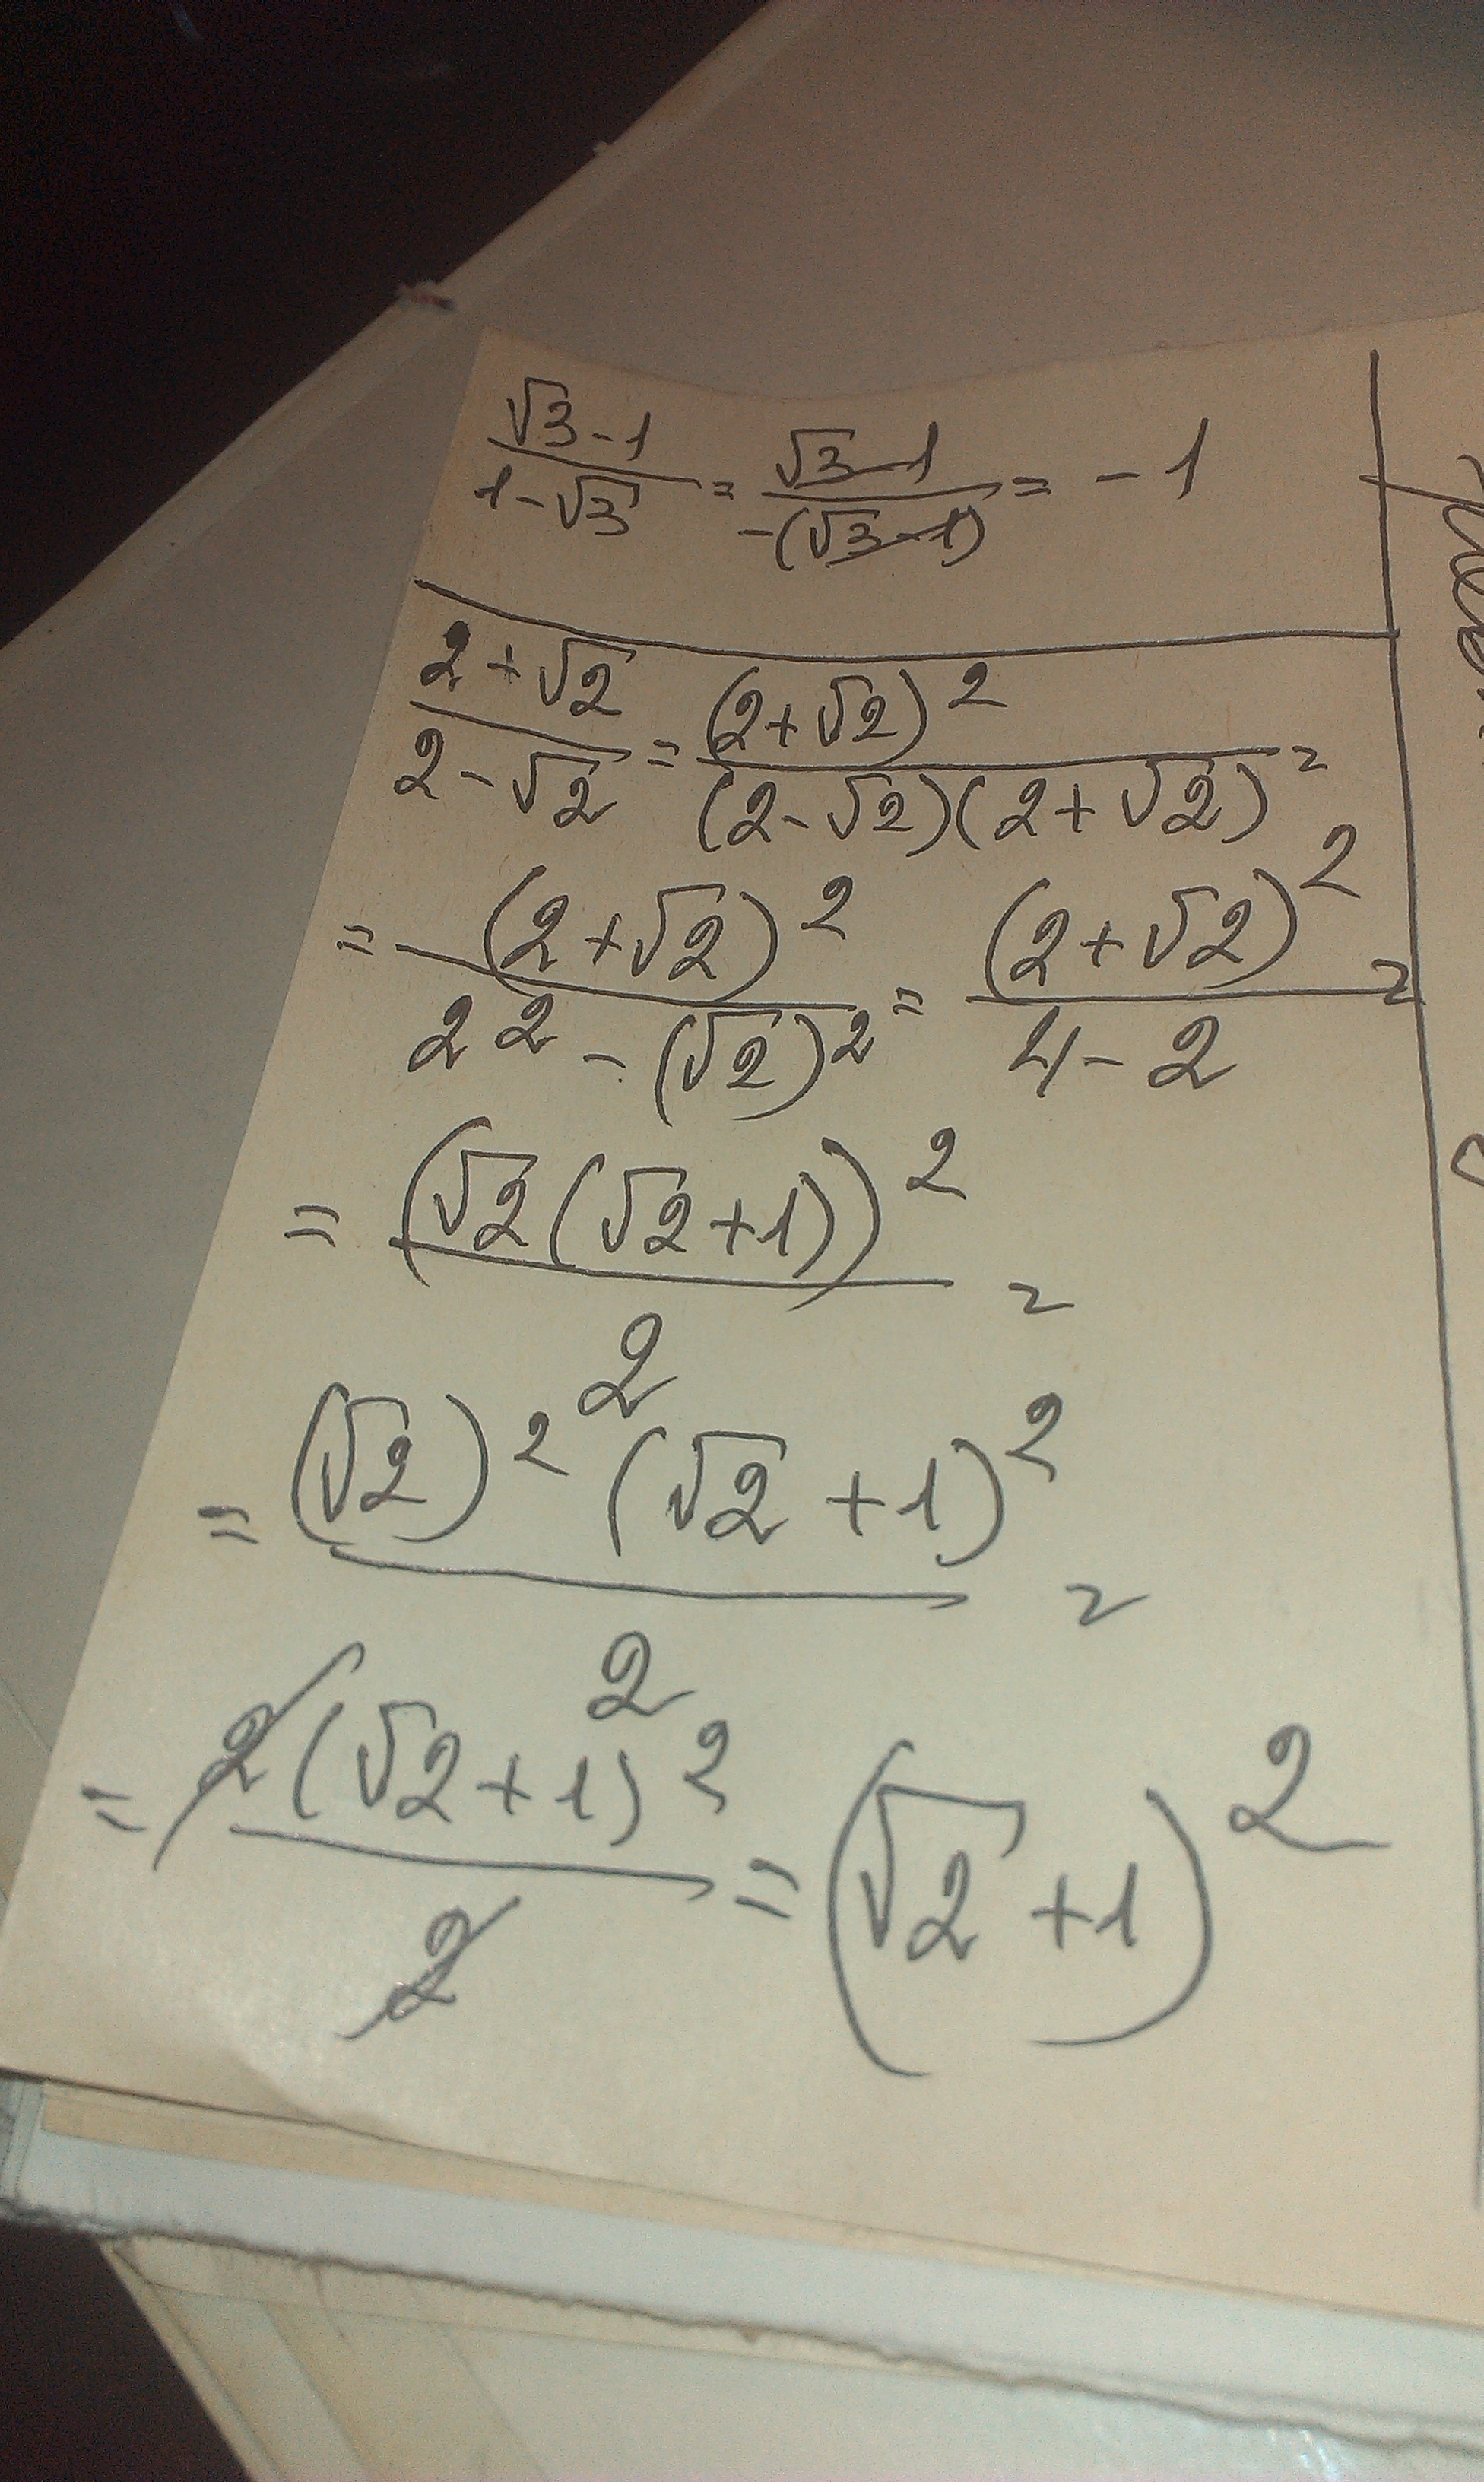 (√3-1)/(1-√3) = (√3-1)/(-(√3-1)) = -1
(2+√2)/(2-√2) = (2+√2)²/((2-√2)(2+√2)) =
= (2+√2)²/(2²-(√2)²) = (2+√2)²/(4-2) =
= (√2(√2+1))²/2 =
= (√2)²(√2+1)²/2 =
= 2(√2+1)²/2 = (√2+1)²